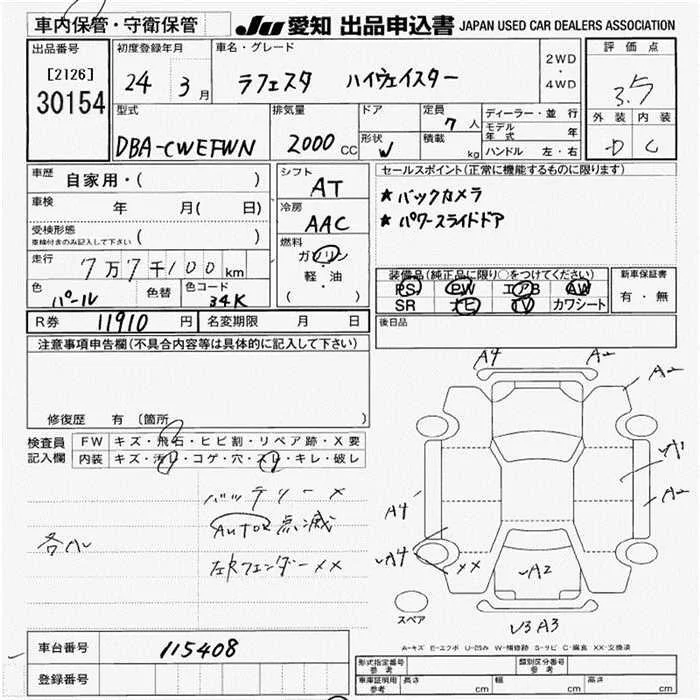 車内保管・守衛保管 JU 愛知 出品申込書 JAPAN USED CAR DEALERS ASSOCIATION
出品番号 初度登録年月 車名・グレード 2WD・4WD 評価点
[2126] 30154 24 3月 ラフェスタ ハイウェイスター 3.5
型式 排気量 ドア 定員 7人 ディーラー・並行 外装 内装
DBA-CWEFWN 2000cc 形状 W 積載 kg モデル年式 年 D C
ハンドル 左・右
車歴 自家用・( ) シフト AT セールスポイント(正常に機能するものに限ります)
車検 年 月( 日) 冷房 AAC ★バックカメラ
受検形態 車検付きのみ記入して下さい ( ) 燃料 ガソリン・軽・油 ( ) ★パワースライドドア
走行 7万7千100km 装備品(純正品に限り○をつけてください) 新車保証書
色 パール 色替 色コード 34K PS PW エアB AW 有・無
SR ナビ TV カワシート
R券 11910円 名変期限 月 日 後日品
注意事項申告欄(不具合内容等は具体的に記入して下さい)
修復歴 有(箇所 )
検査員記入欄 FW キズ・飛石・ヒビ割・リペア跡・X要
内装 キズ・汚れ・コゲ・穴・スレ・キレ・破レ
バッテリー×
AUTO2点滅
左Rフェンダー××
A4 A2 A2
A2
A4
A4 ×× A2
U3 A3
スペア
A-キズ E-エクボ U-凹み W-補修跡 S-サビ C-腐食 XX-交換済
車台番号 115408
登録番号
形式指定番号 参考 類別区分番号 参考
車庫証明用 参考 長さ cm 幅 cm 高さ cm